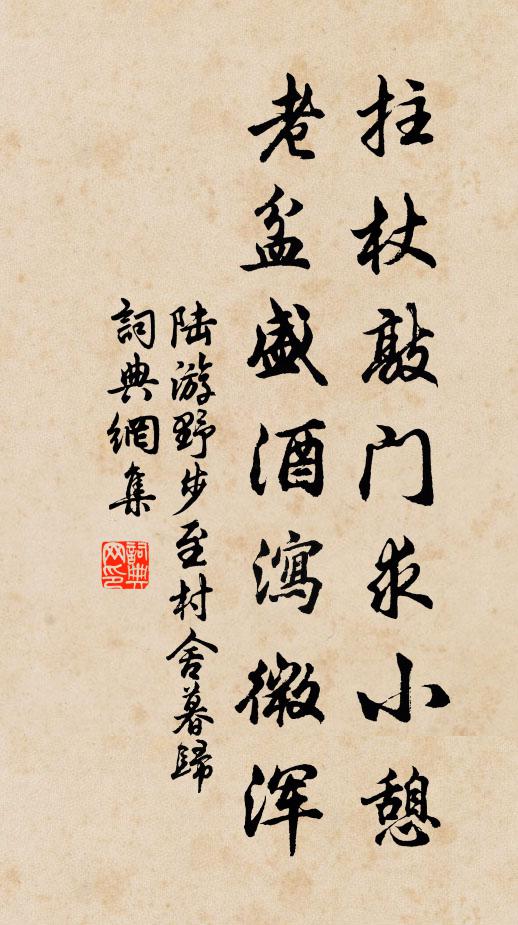 拄杖敲门求小憩
老盆盛酒瀉微浑
陆游野步至村舍暮歸
詞典網集
詞典网印